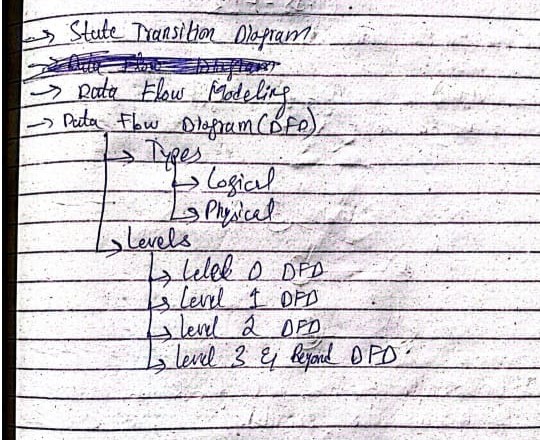 → State Transition Diagram
→ Data Flow Diagram
→ Data Flow Modeling
→ Data Flow Diagram (DFD)
→ Types
→ Logical
→ Physical
→ Levels
→ Level 0 DFD
→ Level 1 DFD
→ Level 2 DFD
→ Level 3 & Beyond DFD.